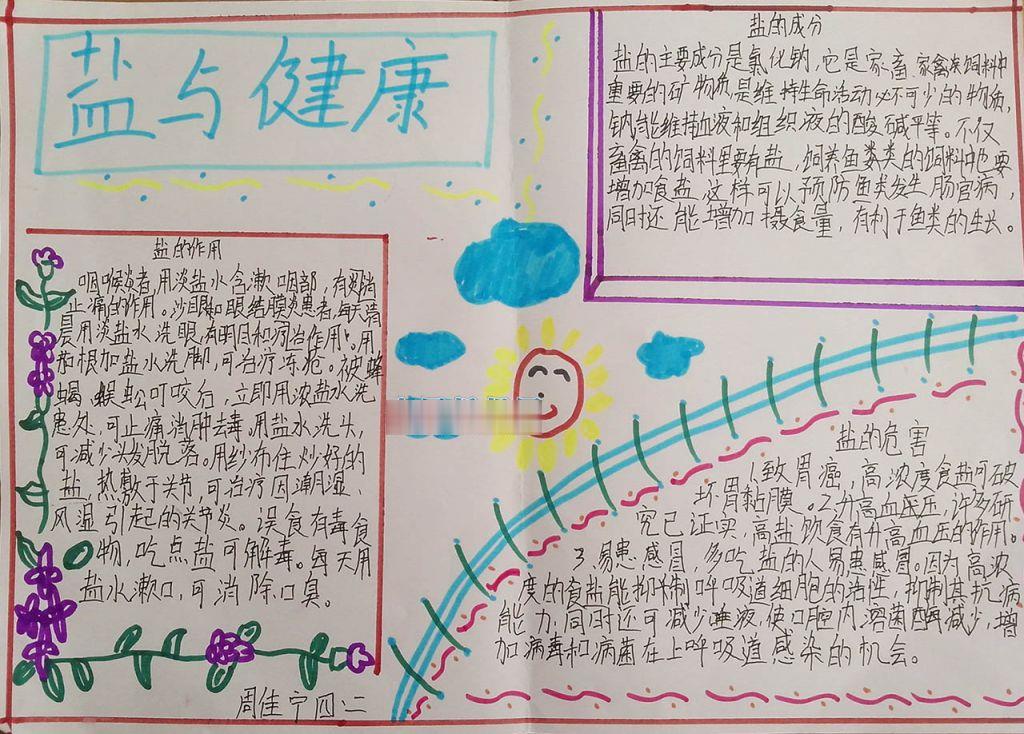 盐与健康
盐的成分
盐的主要成分是氯化钠,它是家畜家禽类饲料中
重要的矿物质,是维持生命活动必不可少的物质,
钠能维持血液和组织液的酸碱平等。不仅
畜禽的饲料里要有盐,饲养鱼类类的饲料中也要
增加食盐,这样可以预防鱼类发生肠官病,
同时还能增加摄食量,有利于鱼类的生长。
盐的作用
咽喉炎者,用淡盐水含漱咽部,有
止痛的作用。沙眼和眼结膜炎患者,每天清
晨用淡盐水洗眼,有明目和疗治作用。用
茄根加盐水洗脚,可治疗冻疮。被蜂
蝎蜈蚣叮咬后,立即用浓盐水洗
患处,可止痛消肿去毒。用盐水洗头,
可减少头发脱落。用纱布住炒好的
盐,热敷于关节,可治疗因潮湿、
风湿引起的关节炎。误食有毒食
物,吃点盐可解毒。每天用
盐水漱口,可消除口臭。
周佳宁四:二
盐的危害
1.致胃癌,高浓度食盐可破
坏胃黏膜。2.升高血压压,许多研
究已证实,高盐饮食有升高血压的作用。
3.易患感冒,多吃盐的人易患感冒。因为高浓
度的食盐能抑制呼吸道细胞的活性,抑制其抗病
能力,同时还可减少唾液,使口腔内溶菌酶减少,增
加病毒和病菌在上呼吸道感染的机会。